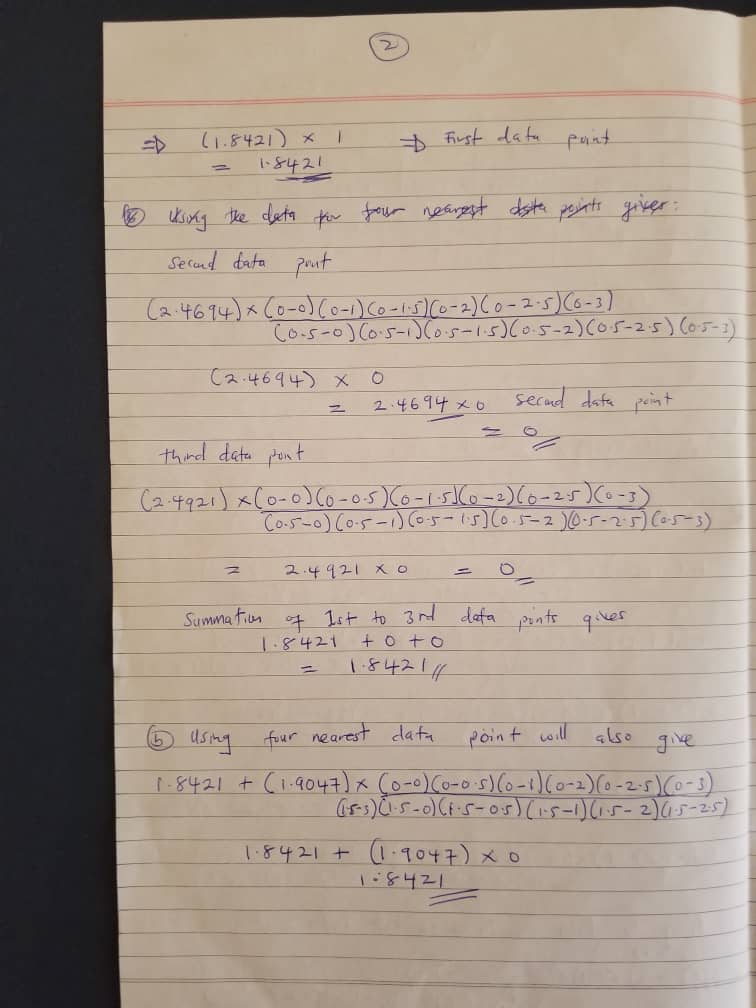 2
⇒ (1.8421) × 1 ⇒ First data point
= 1.8421
(b) Using the data for four nearest data points given:
Second data point
(2.4694) × (0-0)(0-1)(0-1.5)(0-2)(0-2.5)(0-3)
(0.5-0)(0.5-1)(0.5-1.5)(0.5-2)(0.5-2.5)(0.5-3)
(2.4694) × 0
= 2.4694 × 0 second data point
= 0
third data point
(2.4921) × (0-0)(0-0.5)(0-1.5)(0-2)(0-2.5)(0-3)
(0.5-0)(0.5-1)(0.5-1.5)(0.5-2)(0.5-2.5)(0.5-3)
= 2.4921 × 0 = 0
Summation of 1st to 3rd data points gives
1.8421 + 0 + 0
= 1.8421
(b) Using four nearest data point will also give
1.8421 + (1.9047) × (0-0)(0-0.5)(0-1)(0-2)(0-2.5)(0-3)
(1.5-3)(1.5-0)(1.5-0.5)(1.5-1)(1.5-2)(1.5-2.5)
1.8421 + (1.9047) × 0
1.8421